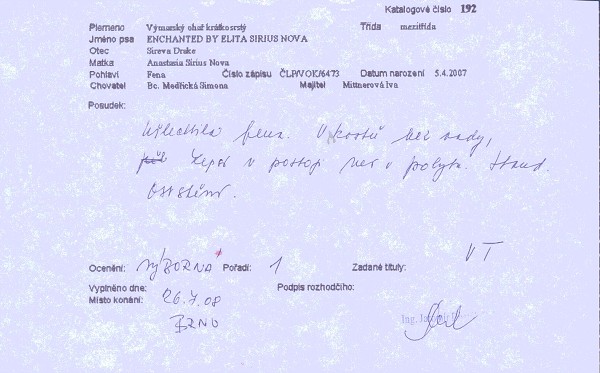 Katalogové číslo 192
Plemeno Výmarský ohař krátkosrstý Třída mezitřída
Jméno psa ENCHANTED BY ELITA SIRIUS NOVA
Otec Sireva Drake
Matka Anastasia Sirius Nova
Pohlaví Fena Číslo zápisu ČLP/VOK/6473 Datum narození 5.4.2007
Chovatel Bc. Medřická Simona Majitel Mittnerová Iva
Posudek:
Ušlechtilá fena. V kostů bez vady,
lepší v postoji než v pohybu. Stand.
osrstění.
Ocenění: VÝBORNÁ Pořadí: 1 Zadané tituly: VT
Vyplněno dne: 26.7.08 Podpis rozhodčího:
Místo konání: BRNO
Ing.